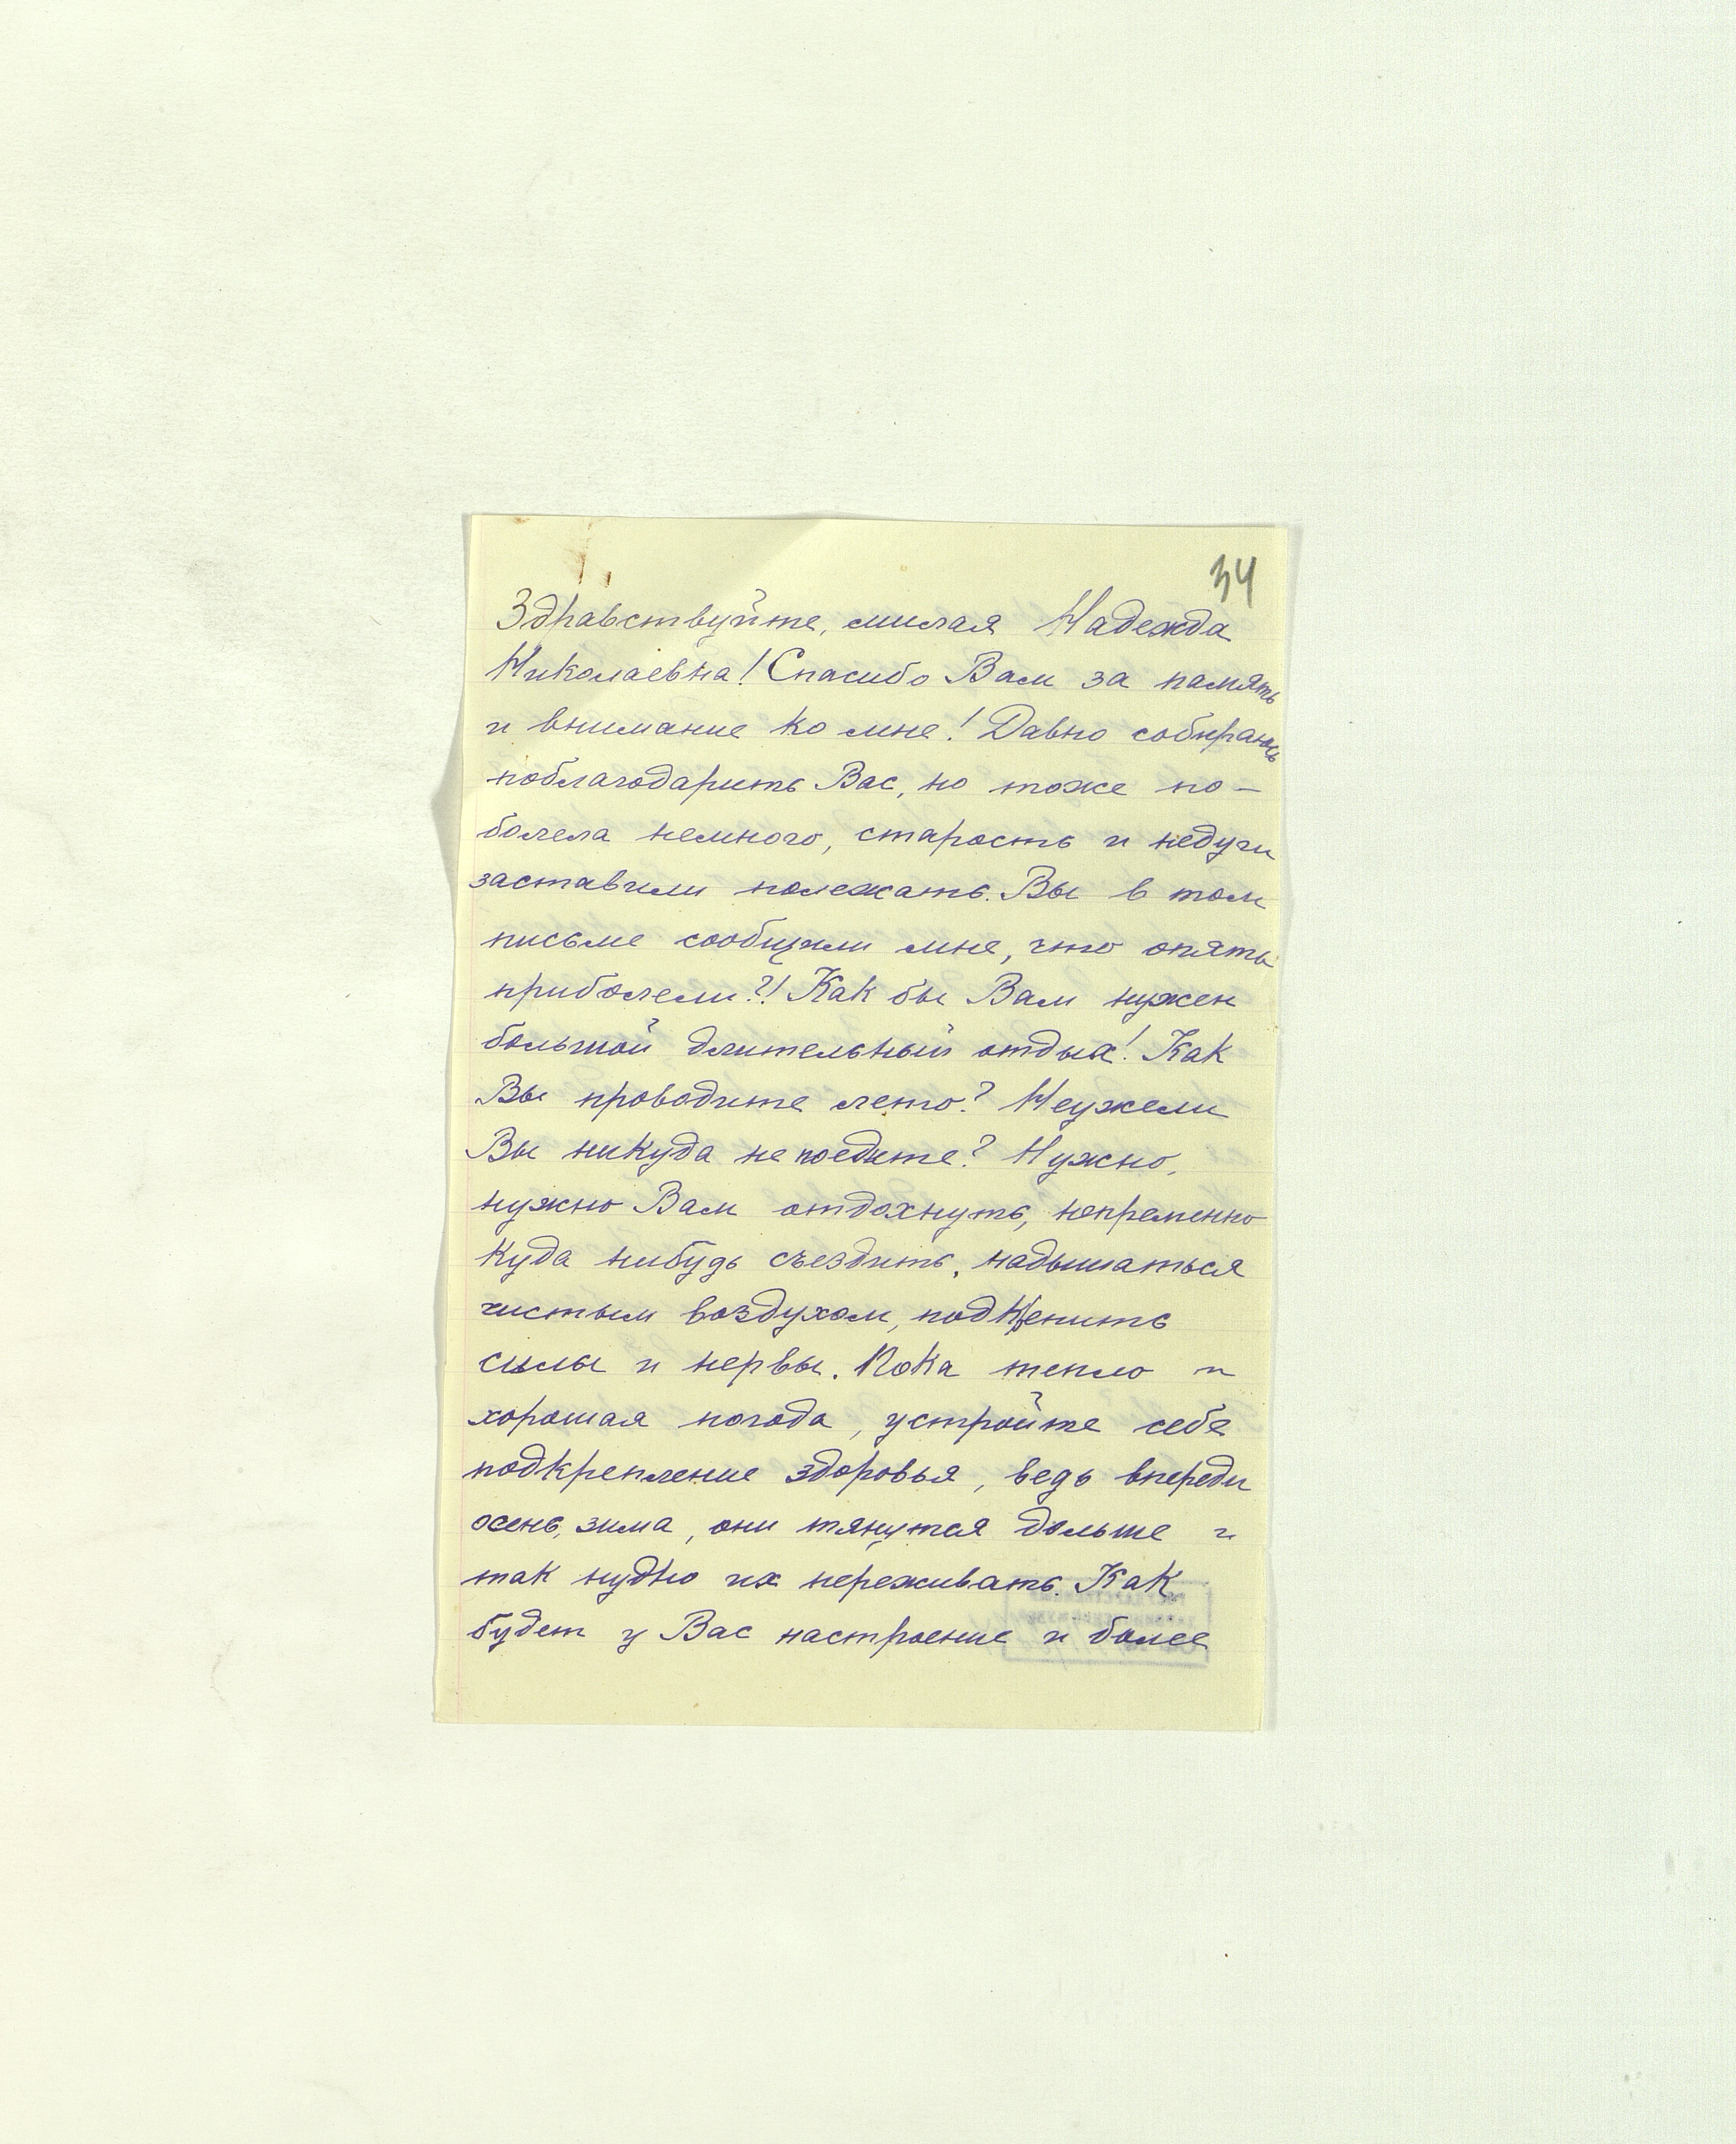 34
Здравствуйте, милая Надежда
Николаевна! Спасибо Вам за память
и внимание ко мне! Давно собираюсь
поблагодарить Вас, но тоже по-
болела немного, старость и недуги
заставили полежать. Вы в том
письме сообщили мне, что опять
приболели?! Как бы Вам нужен
большой длительный отдых! Как
Вы проводите лето? Неужели
Вы никуда не поедите? Нужно,
нужно Вам отдохнуть, непременно
куда нибудь съездить, надышаться
чистым воздухом, подкрепить
силы и нервы. Пока тепло и
хорошая погода, устройте себе
подкрепление здоровья, ведь впереди
осень, зима, они тянутся дольше и
так нудно их переживать. Как
будет у Вас настроение и более